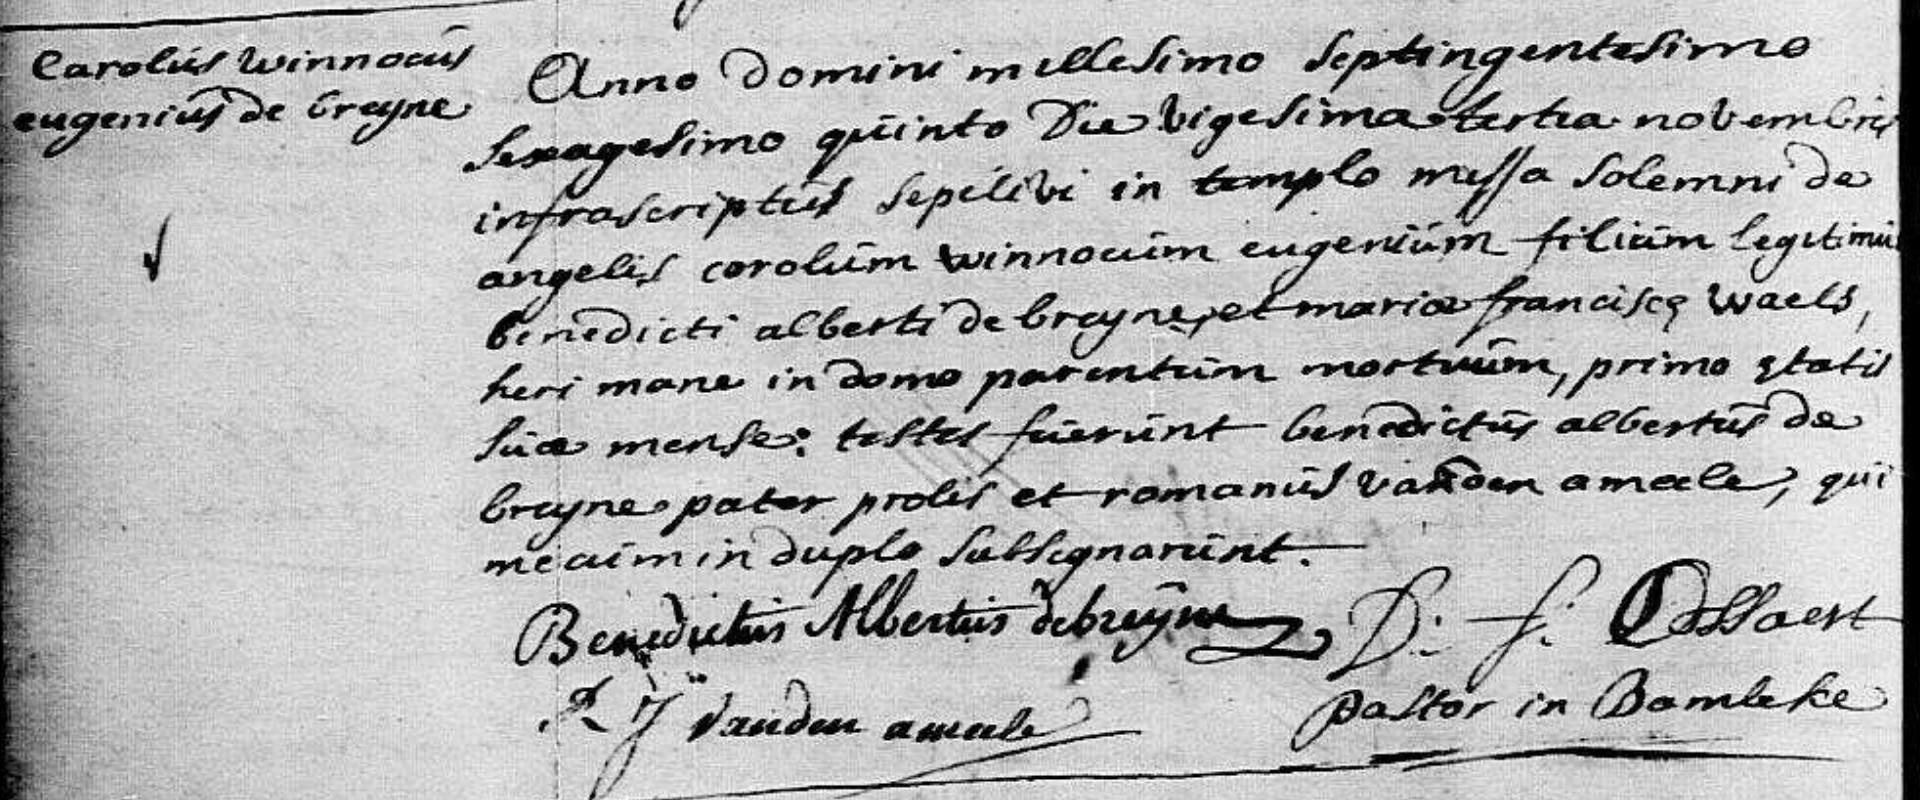 Carolus winnocus
eugenius de breyne
Anno Domini millesimo septingentesimo
sexagesimo quinto Die vigesima tertia novembris
infrascriptus sepelivi in templo missa solemni de
angelis carolum winnocum eugenium filium legitimu
benedicti alberti de breyne, et mariæ franciscę waels,
heri mane in domo parentum mortuum, primo ętatis
suæ mense: testes fuerunt benedictus albertus de
breyne pater prolis et romanus vanden ameele, qui
mecum in duplo subsignarunt.
Benedictus Albertus debreyne D: f: Cossaert
R J vanden ameele pastor in Bambeke